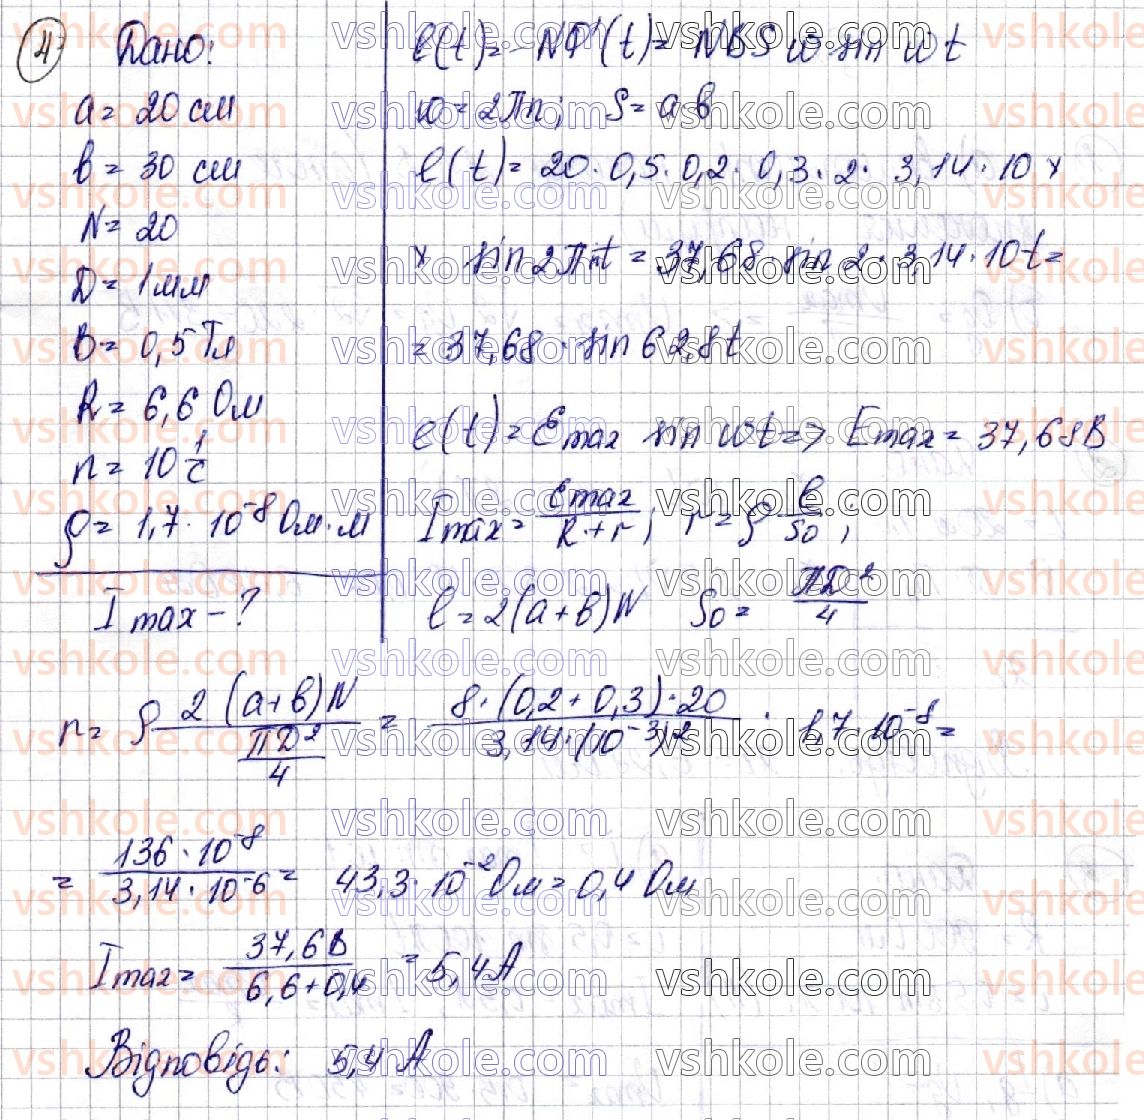 4) Дано:
a = 20 см
b = 30 см
N = 20
D = 1 мм
B = 0,5 Тл
R = 6,6 Ом
n = 10 1/с
ρ = 1,7 · 10⁻⁸ Ом · м
I max - ?
e(t) = -NФ'(t) = NBSω sin ωt
ω = 2πn; S = a·b
e(t) = 20 · 0,5 · 0,2 · 0,3 · 2 · 3,14 · 10 ×
× sin 2πnt = 37,68 · sin 2 · 3,14 · 10t =
= 37,68 · sin 62,8t
e(t) = Ɛmax sin ωt => Ɛmax = 37,68 В
Imax = Ɛmax / (R + r); r = ρ l/S₀;
l = 2(a + b)N S₀ = πD²/4
r = ρ 2(a+b)N / (πD²/4) = 8 · (0,2 + 0,3) · 20 / (3,14 · (10⁻³)²) · 1,7 · 10⁻⁸ =
= 136 · 10⁻⁸ / (3,14 · 10⁻⁶) = 43,3 · 10⁻² Ом = 0,4 Ом
I max = 37,6 В / (6,6 + 0,4) = 5,4 А
Відповідь: 5,4 А
vshkole.com